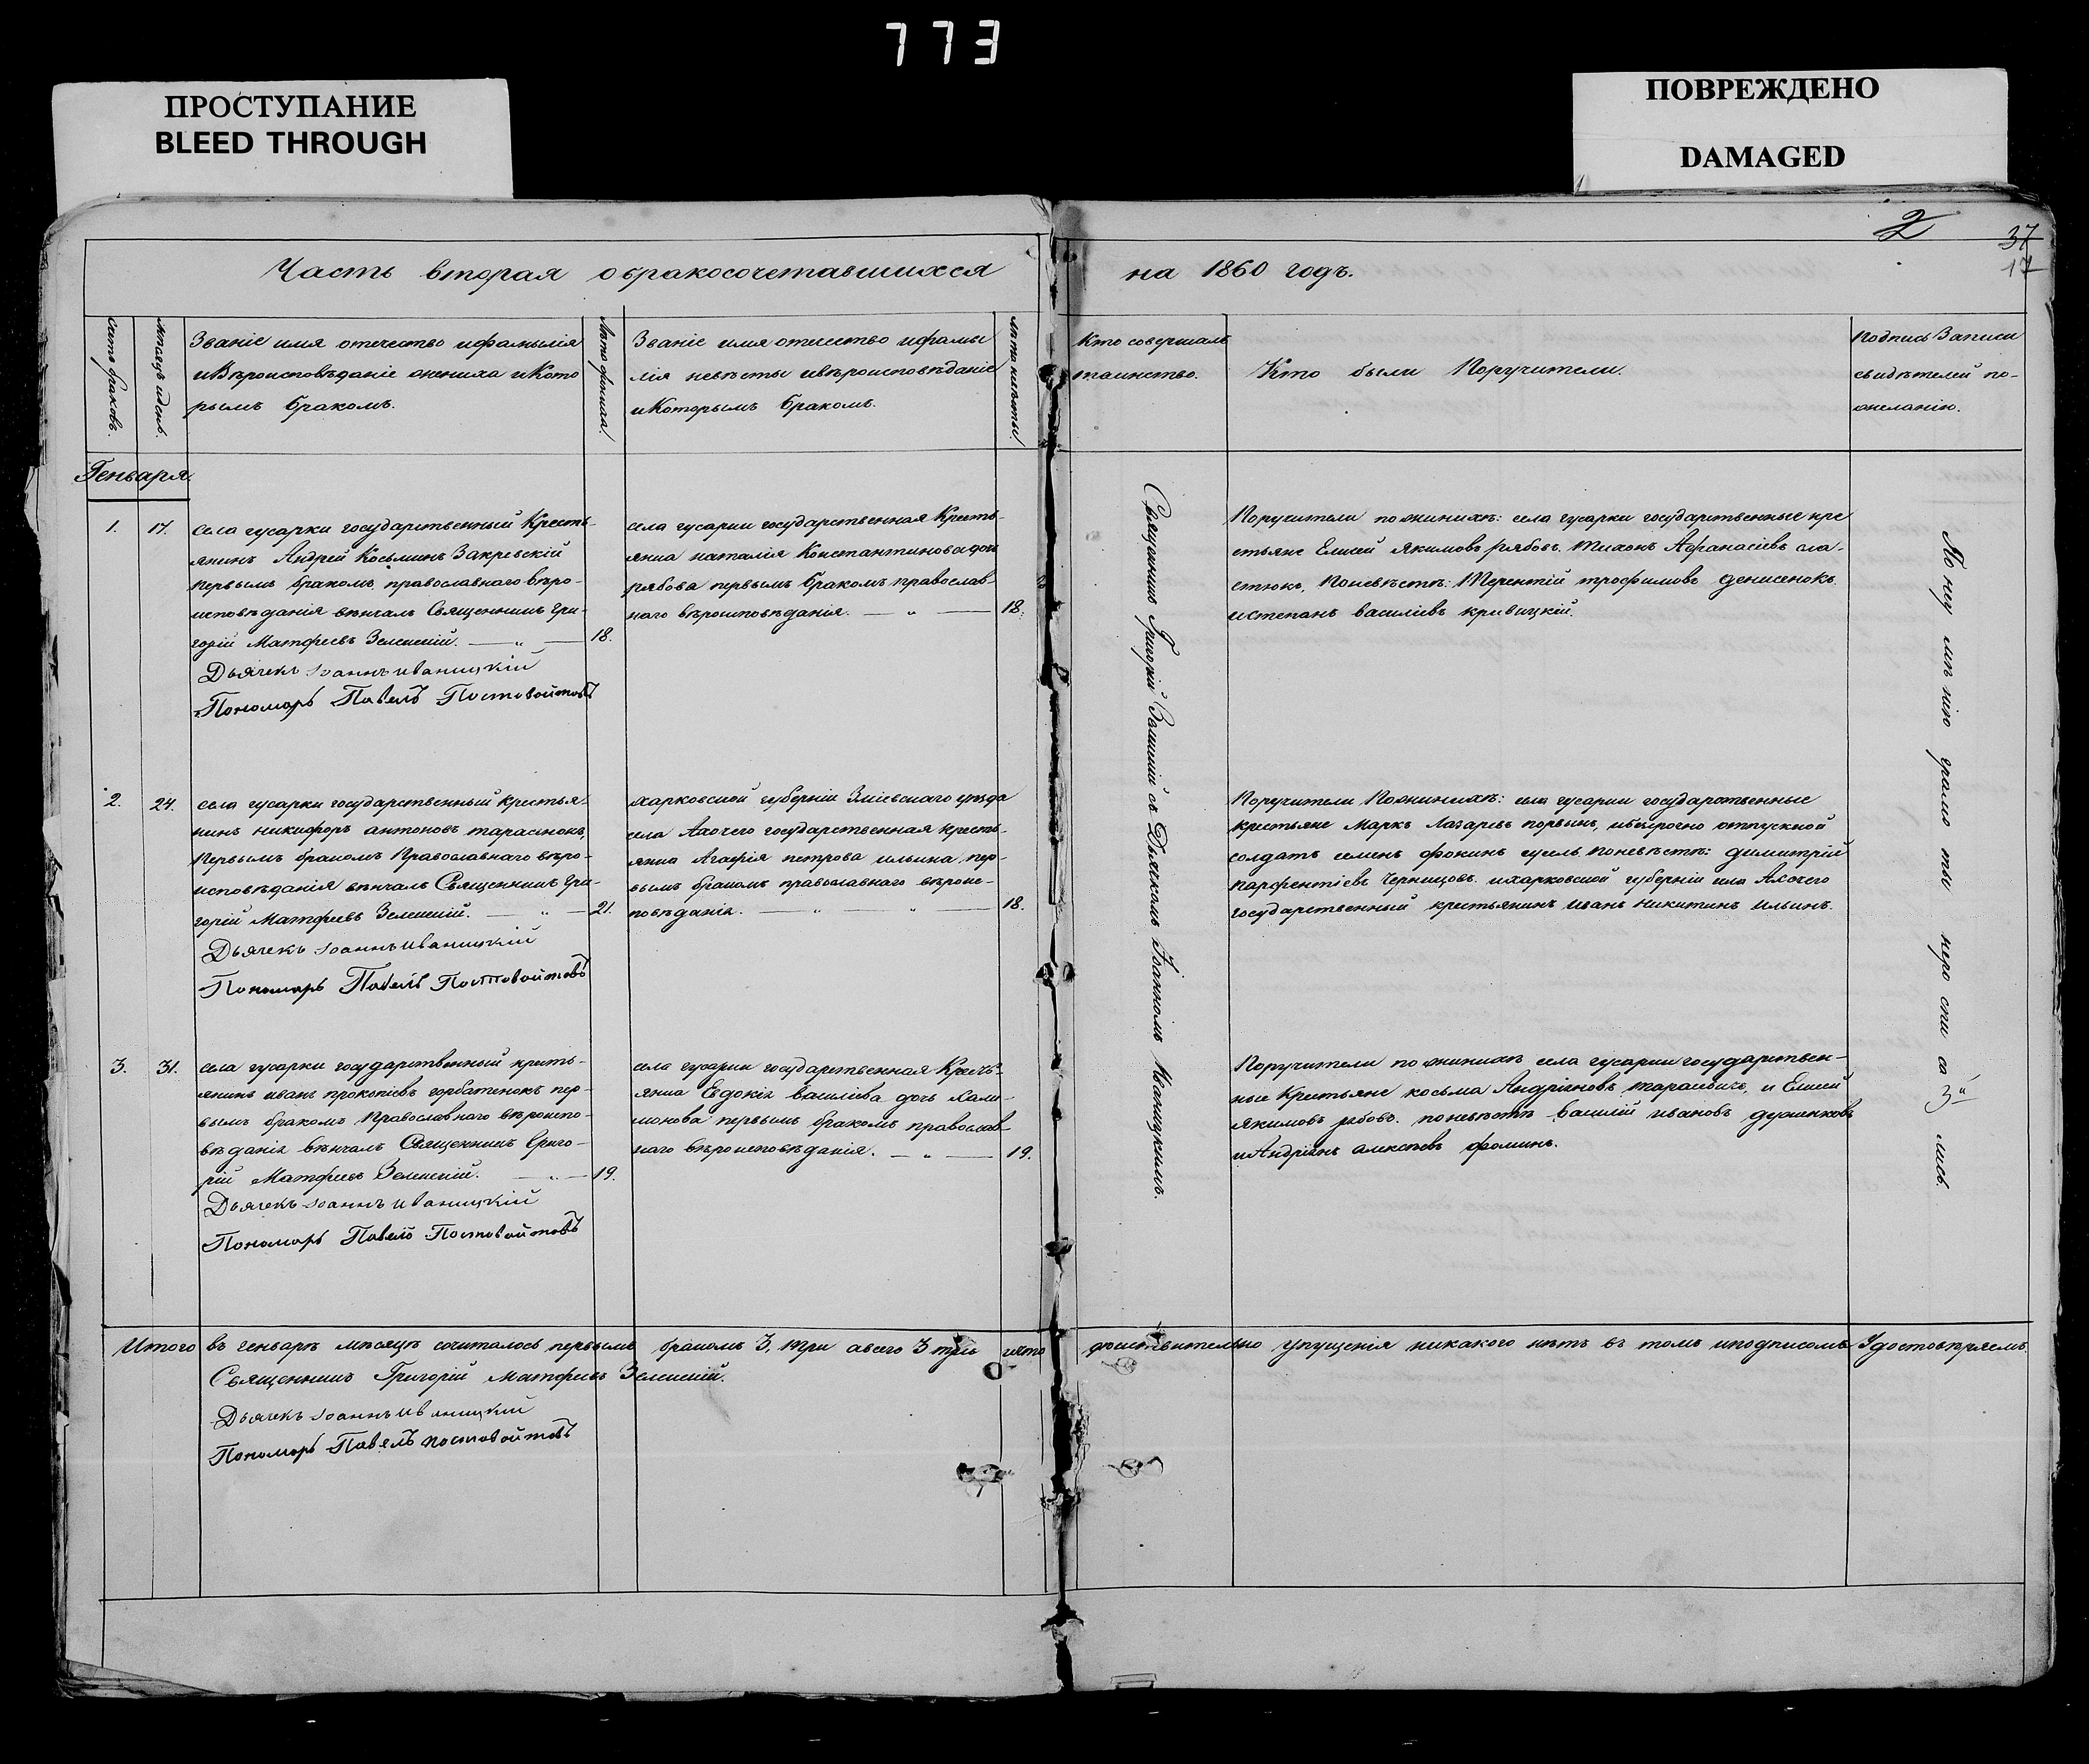 773
ПРОСТУПАНИЕ
BLEED THROUGH
ПОВРЕЖДЕНО
DAMAGED
2
37
17
Часть вторая о бракосочетавшихся на 1860 годъ.
Счетъ браковъ.
Мѣсяцъ и день.
Званіе имя отечество ифамылія
иВѣроисповѣданіе жениха иКото
рымъ бракомъ.
Лѣта жениха.
Званіе имя отечество ифамы
лія невѣсты ивѣроисповѣданіе
иКоторымъ бракомъ.
Лѣта невѣсты.
Кто совершалъ
таинство.
Кто были Поручители.
Подпись Записи
свидѣтелей по-
желанію.
Генваря.
1.
17.
села гусарки государственный Кресть-
янинъ Андрей Косьминъ Закревскій
первымъ бракомъ православнаго вѣро-
исповѣданія вѣнчалъ Священникъ Гри-
горій Матфеевъ Зеленскій. — „ — 18.
Дьячекъ Іоаннъ иваницкій
Пономарь Павелъ Постовойтовъ
села гусарки государственная Кресть-
янка наталія Константинова дочь
рябова первымъ бракомъ православ-
наго вѣроисповѣданія. — „ — 18.
Поручители пожинихѣ: села гусарки государственные кре
стьяне Елисей Якимовъ рябовъ. Тихонъ Афанасіевъ сла-
стюкъ, Поневѣстѣ: Терентій трофимовъ денисенокъ
истепанъ василіевъ кривицкій.
2.
24.
села гусарки государственный крестья-
нинъ никифоръ антоновъ тарасенокъ,
Первымъ бракомъ Православнаго вѣро-
исповѣданія вѣнчалъ Священникъ Гри-
горій Матфеевъ Зеленскій. — „ — 21.
Дьячекъ Іоаннъ иваницкій
Пономарь Павелъ Постовойтовъ
харковской губерніи Зміевскаго уѣзда
села Ахочего государственная кресть-
янка Агафія петрова ильина, пер-
вымъ бракомъ православнаго вѣроис-
повѣданія. — „ — „ — 18.
Поручители Пожинихѣ: села гусарки государственные
крестьяне Маркъ Лазаревъ
солдатъ семенъ фокинъ гусель. поневѣстѣ: димитрій
парфентіевъ Черницовъ ихарковской губерніи села Ахочего
государственный крестьянинъ Иванъ Никитинъ Ильинъ.
3.
31.
села гусарки государственный кресть-
янинъ иванъ прокопіевъ горбатенокъ пер-
вымъ бракомъ Православнаго вѣроиспо-
вѣданія вѣнчалъ Священникъ Григо-
рій Матфеевъ Зеленскій. — „ — 19.
Дьячекъ Іоаннъ иваницкій
Пономарь Павелъ Постовойтовъ
села гусарки государственная Кресть-
янка Евдокія василіева дочь
первымъ бракомъ православ-
наго вѣроисповѣданія. — „ — 19.
Поручители пожинихѣ села гусарки государствен-
ные Крестьяне косьма Андріяновъ тарасовъ, и Елисей
якимовъ рябовъ. поневѣстѣ василій ивановъ
иАндріянъ алексѣевъ фоминъ.
Священникъ Григорій Зеленскій съ Дьячкомъ Іоанномъ Иваницкимъ.
По неу мѣ нію грамо ты неро спи са лись.
Итого въ генварѣ мѣсяцѣ сочиталось первымъ бракомъ 3, три авсего 3 три что дѣйствительно упущенія никакого нѣтъ въ томъ иподписомъ Удостовѣряемъ.
Священникъ Григорій Матфеевъ Зеленскій.
Дьячекъ Іоаннъ иваницкій
Пономарь Павелъ постовойтовъ